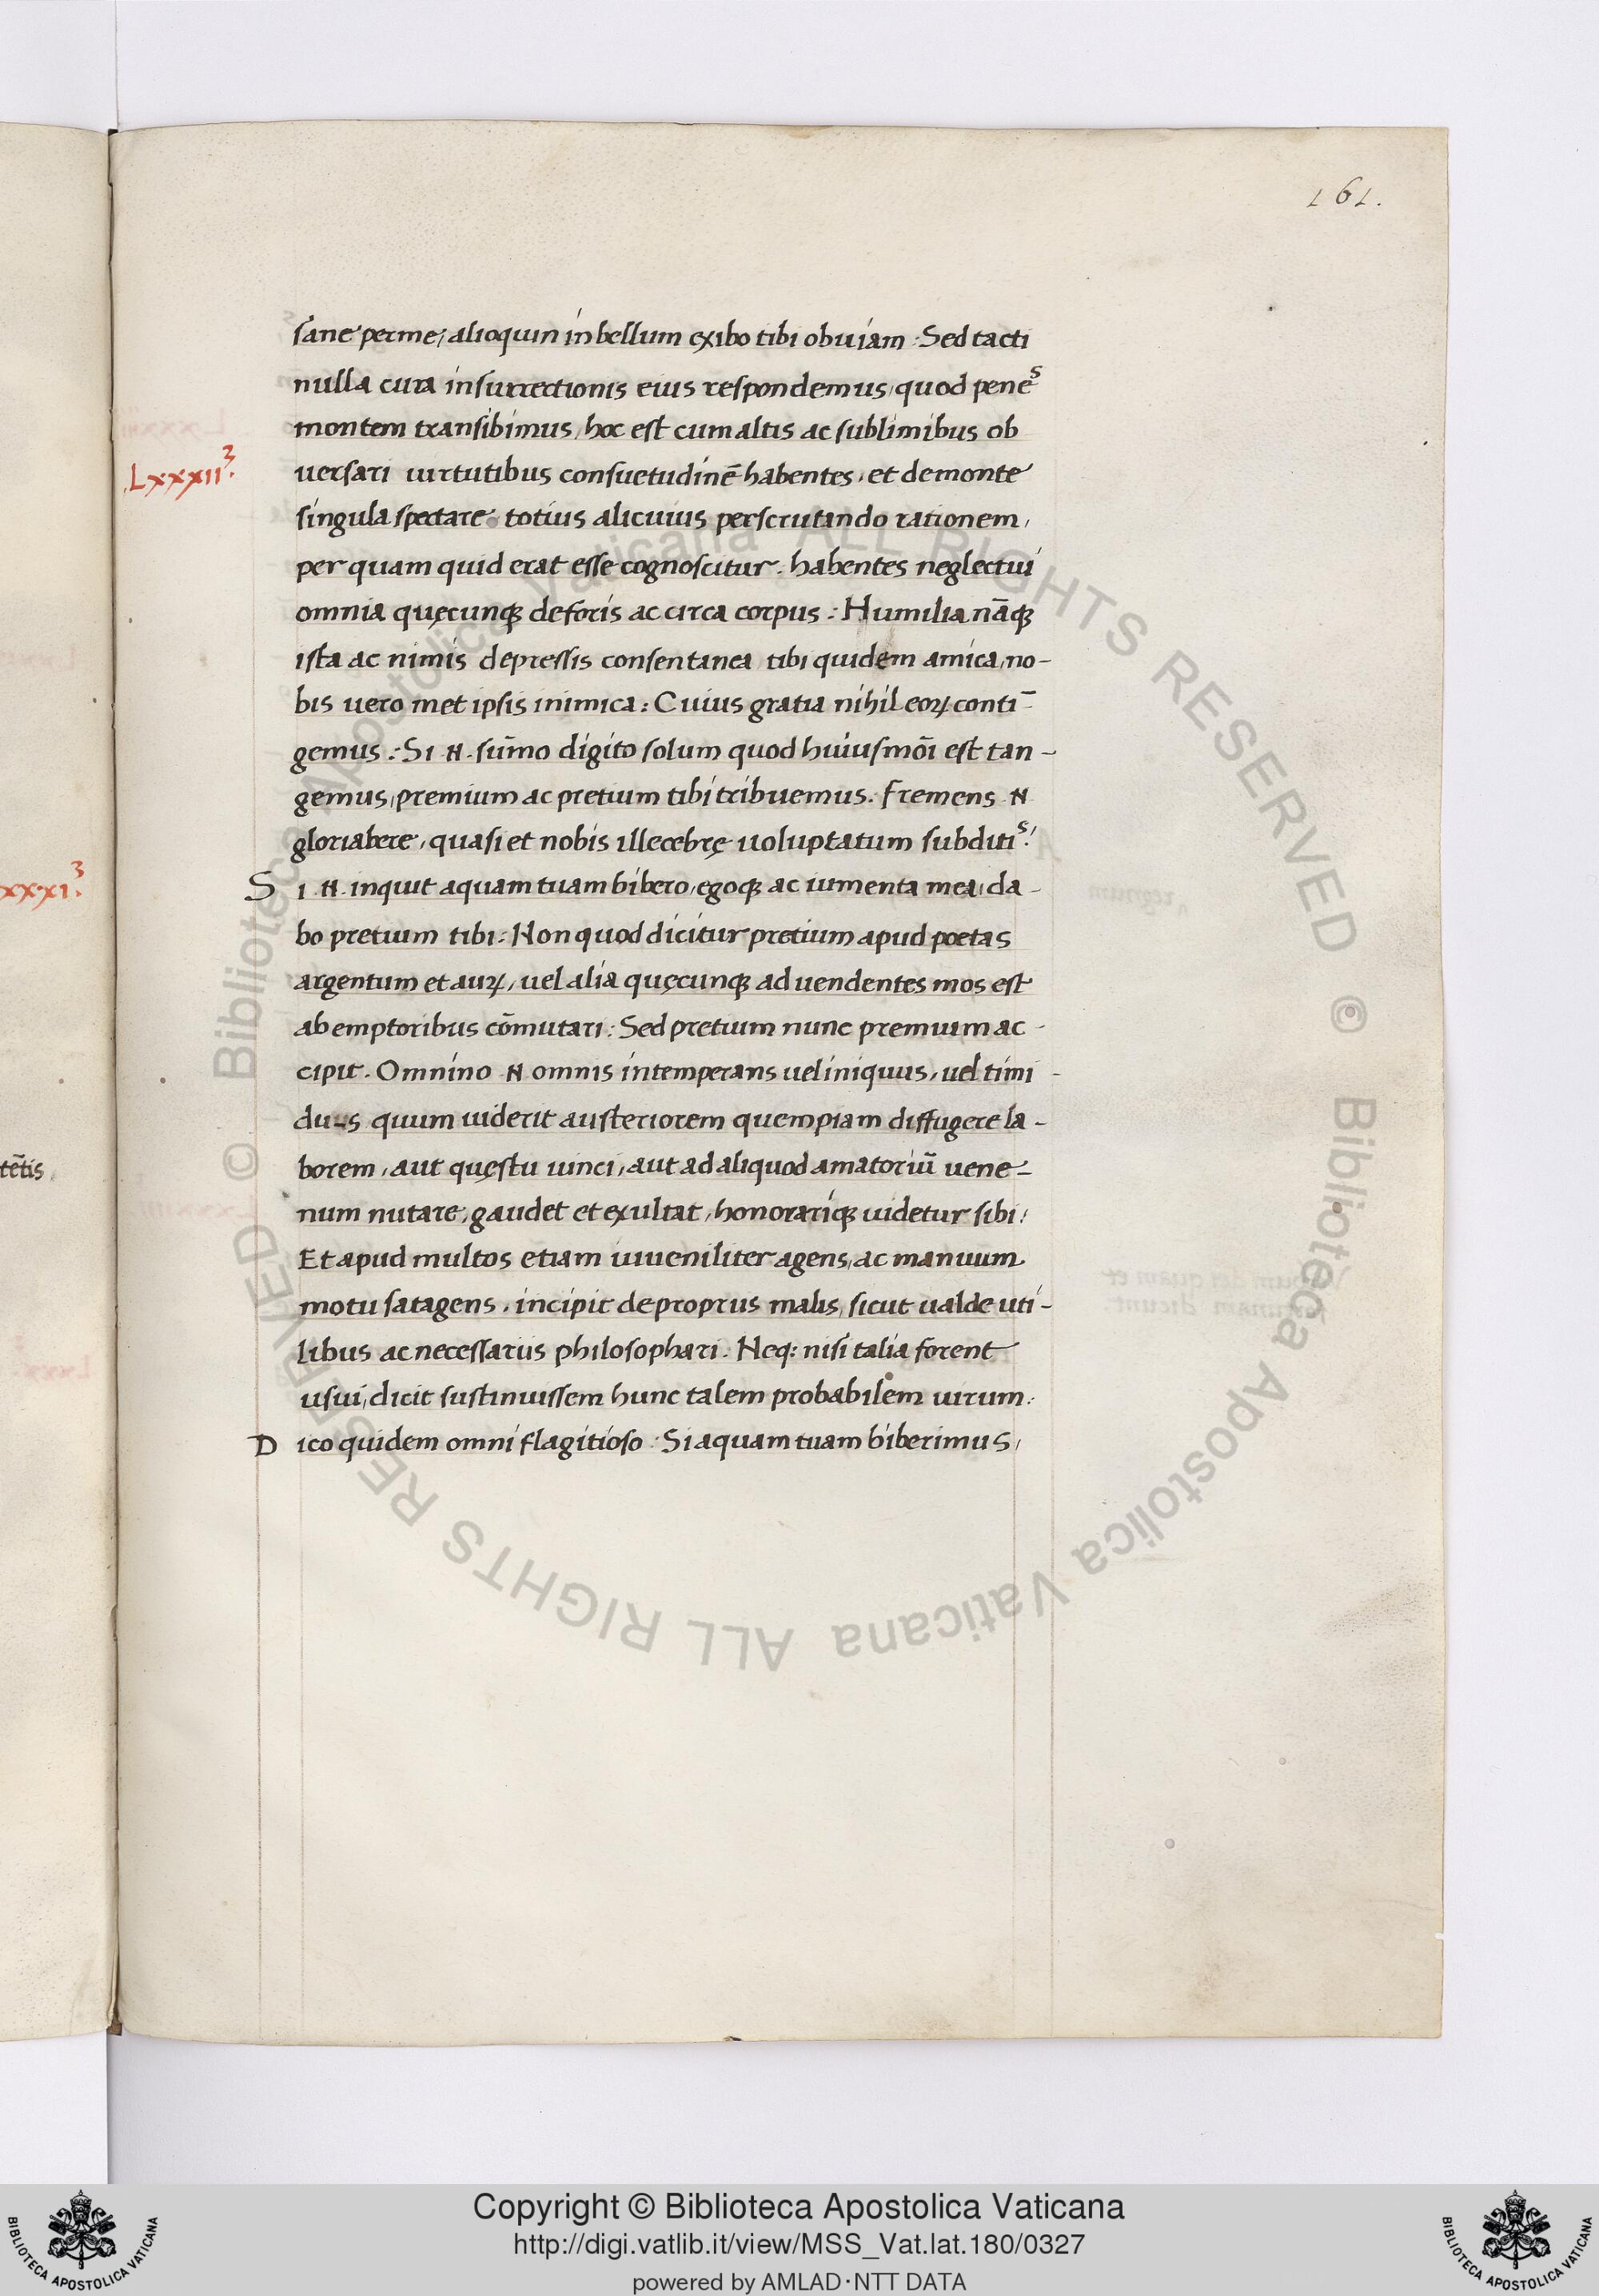 161.
sane perme, alioquin in bellum exibo tibi obuiam. Sed tacti
nulla cura insurrectionis eius respondemus, quod penes
montem transibimus, hoc est cum altis ac sublimibus ob
LXXXII
uersari uirtutibus consuetudinē habentes, et de monte
singula spectare totius alicuius perscrutando rationem,
per quam quid erat esse cognoscitur. habentes neglectui
omnia quęcunqꝫ deforis ac circa corpus: Humilia nāqꝫ
ista ac nimis depressis consentanea, tibi quidem amica, no-
bis uero met ipsis inimica: Cuius gratia nihil eoꝝ conti-
gemus: Si .N. sūmo digito solum quod huiusmōi est tan-
gemus, premium ac pretium tibi tribuemus. fremens .N
gloriabere, quasi et nobis illecebrę uoluptatum subditis.
xxxi
SI .N. inquit aquam tuam bibero, egoqꝫ ac iumenta mea, da-
bo pretium tibi: Non quod dicitur pretium apud poetas
argentum et auꝝ, uel alia quęcunqꝫ ad uendentes mos est
ab emptoribus cōmutari: Sed pretium nunc premium ac-
cipit. Omnino .N omnis intemperans uel iniquus, uel timi-
duus quum uiderit austeriorem quempiam diffugere la-
borem, aut quęstu uinci, aut ad aliquod amatoriū uene-
tētis
num nutare, gaudet et exultat, honorariqꝫ uidetur sibi:
Et apud multos etiam iuueniliter agens, ac manuum
motu satagens, incipit de propriis malis, sicut ualde uti-
libus ac necessariis philosophari. Neq: nisi talia forent
usui, dicit sustinuissem hunc talem probabilem uirum:
Dico quidem omni flagitioso. Si aquam tuam biberimus,
© Biblioteca Apostolica Vaticana ALL RIGHTS RESERVED © Biblioteca Apostolica Vaticana ALL RIGHTS RESERVED
Copyright © Biblioteca Apostolica Vaticana
http://digi.vatlib.it/view/MSS_Vat.lat.180/0327
powered by AMLAD·NTT DATA
BIBLIOTECA APOSTOLICA VATICANA
BIBLIOTECA APOSTOLICA VATICANA